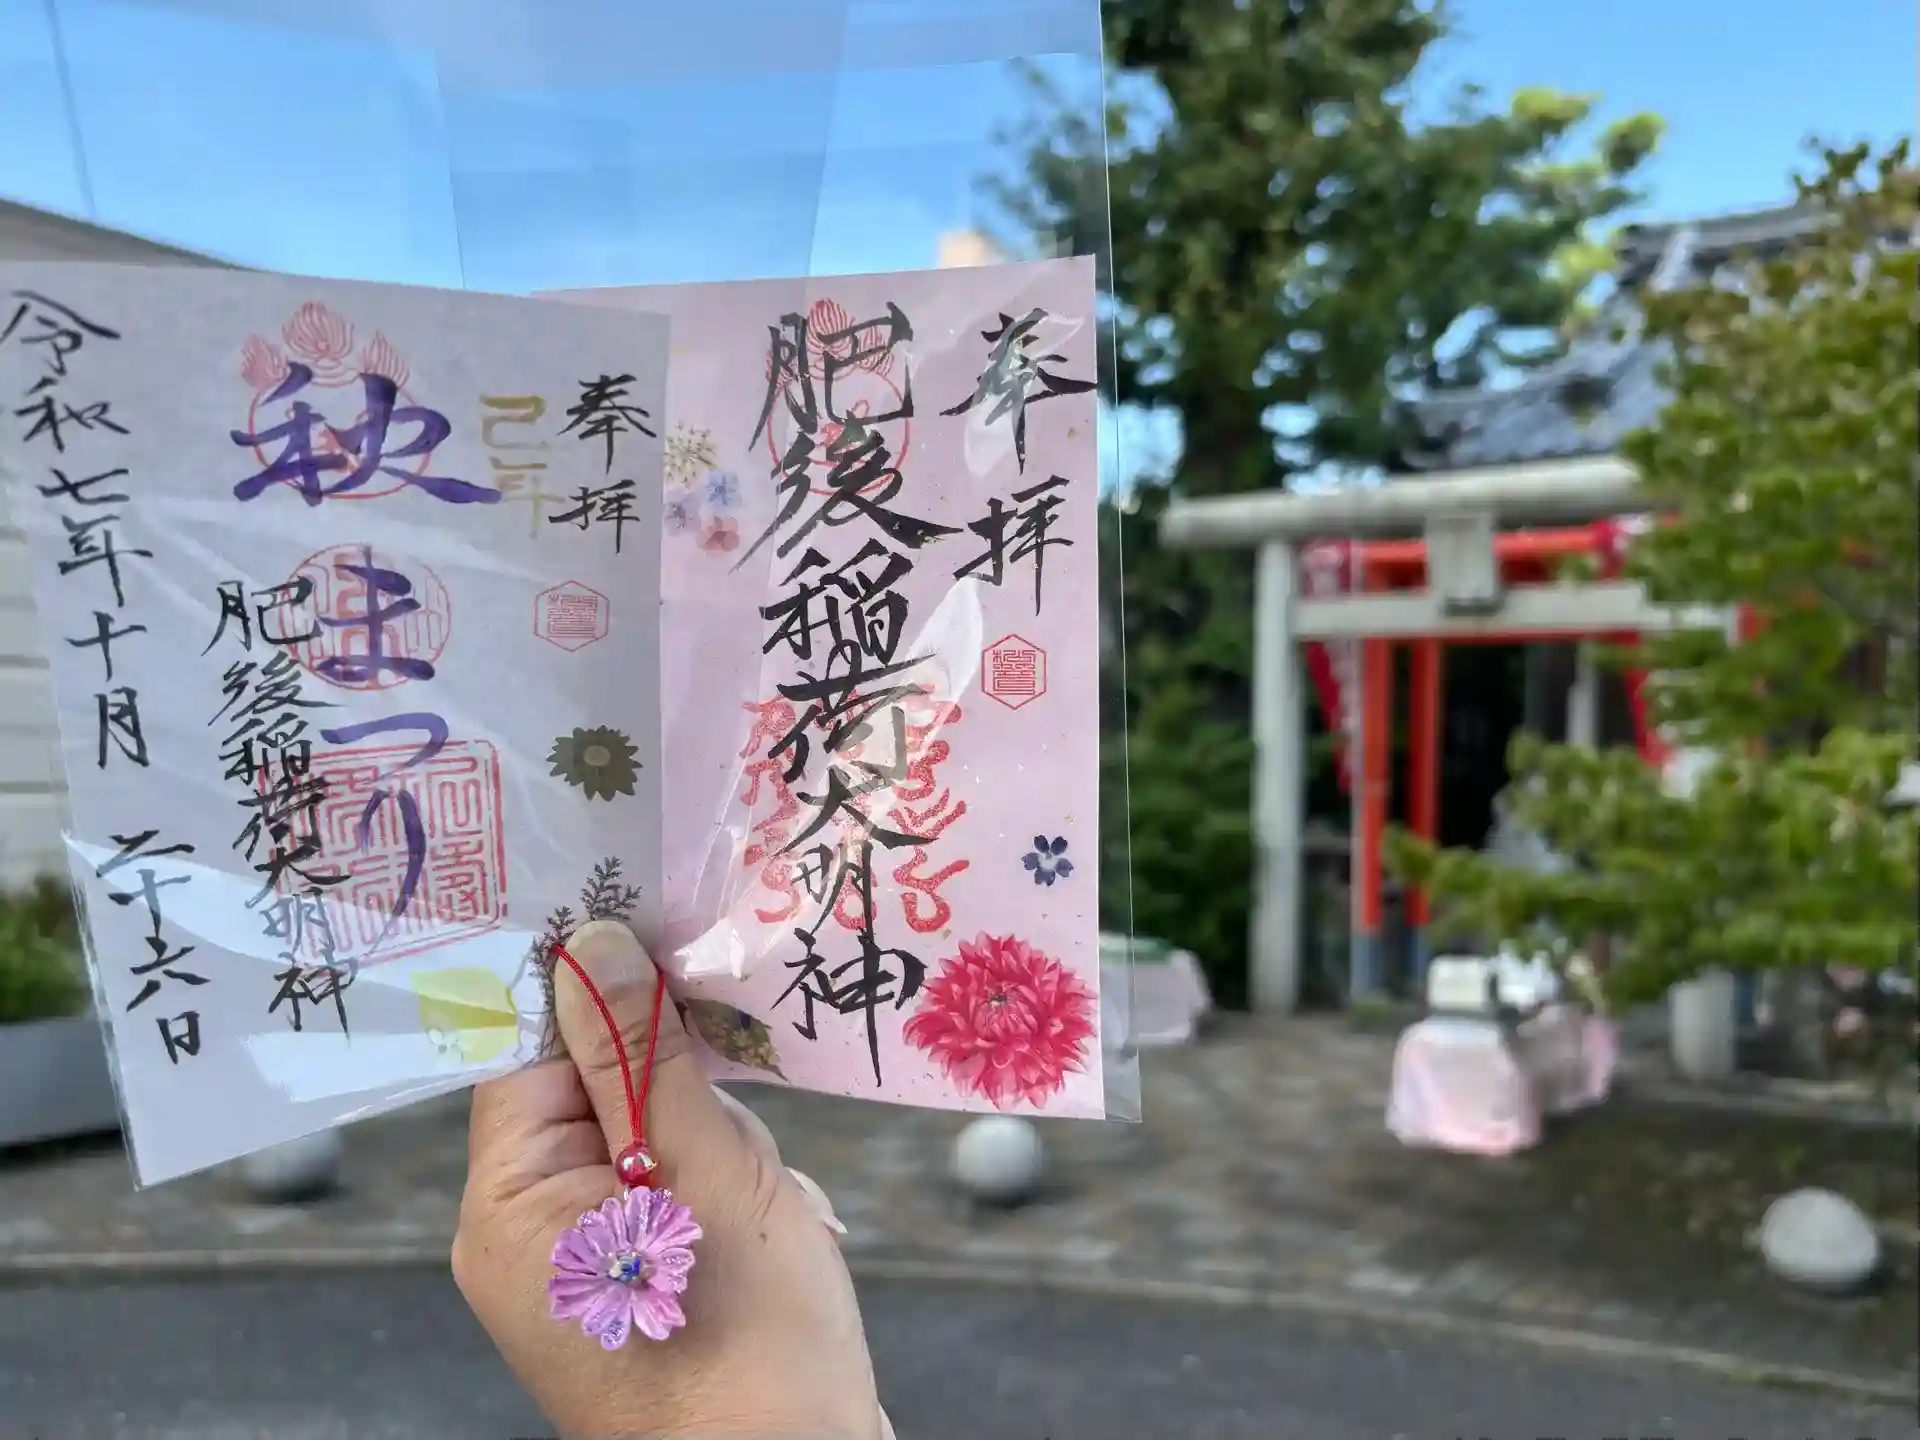 奉拝
肥後稲荷大明神
奉拝
己年
秋まつり
肥後稲荷大明神
令和七年十月二十六日